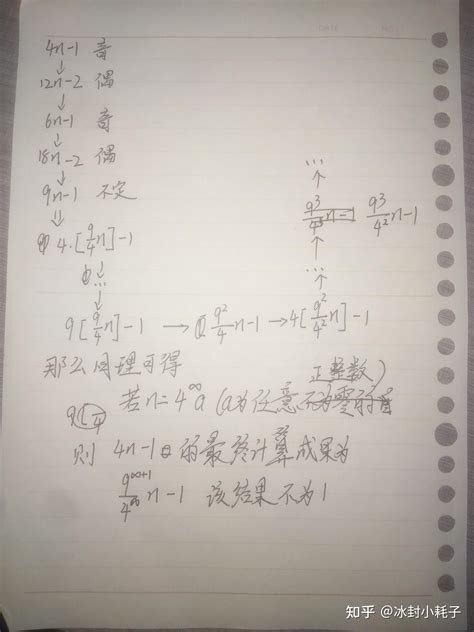 4n-1 奇
↓
12n-2 偶
↓
6n-1 奇
↓
18n-2 偶
↓
9n-1 不定
⇓
① 4·[9/4 n]-1
…
↓
9[9/4 n]-1 → 9²/4 n-1 → 4[9²/4² n]-1
↑
…
↑
9³/4² n-1
↑
…
那么同理可得
若n=4^∞ a (a为任意正整数)
则 4n-1的最终计算成果为
9^(∞+1)/4^∞ n-1 该结果不为1
知乎 @冰封小耗子